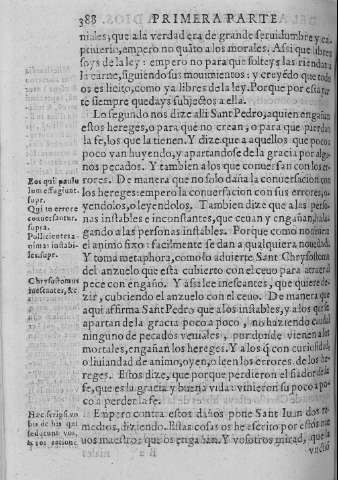 388 PRIMERA PARTE
niales, que a la verdad era de grande seruidumbre y cap
tiuerio, empero no quāto a los morales. Assi que libres
soys de la ley: empero no para que solteys las riendas a
la carne, siguiendo sus mouimientos: y creyēdo que todo
os es licito, como ya libres de la ley. Porque por esta par
te siempre quedays subjectos a ella.
Lo segundo nos dize alli Sant Pedro, a quien engañan
estos hereges, o para que no crean, o para que pierdan
la fe, los que la tienen. Y dize que a aquellos que poco a
poco van huyendo, y apartandose de la gracia por algu
nos pecados. Y tambien a los que conuersan con los er-
rores. De manera que no solo daña la conuersacion con
los hereges: empero la conuersacion con sus errores, o
yendolos, o leyendolos. Tambien dize que a las perso
nas instables e inconstantes, que ceuan y engañan, hala
gando a las personas instables. Porque como no tienen
el animo fixo: facilmente se dan a qualquiera nouedad.
Y toma metaphora, como lo aduierte Sant Chrysostomo
del anzuelo que esta cubierto con el ceuo para atraer el
pece con engaño. Y assi lee inescantes, que quiere de-
zir, cubriendo el anzuelo con el ceuo. De manera que
aqui affirma Sant Pedro que a los instables, y a los que se
apartan de la gracia poco a poco, no haziendo caudal
ninguno de pecados veniales, por donde vienen a los
mortales, engañan los hereges. Y a los q̄ con curiosidad
o liuiandad de animo, oyen, o leen los errores de los he-
reges. Estos dize, que porque perdieron el fiador de la
fe, que es la gracia y buena vida: vinieron su poco a po-
co a perder la fe.
Empero contra estos daños pone Sant Iuan dos re-
medios, diziendo. Estas cosas os he escrito por estos nue
uos maestros que os engañan. Y vosotros mirad, que la
vnctiō
Eos qui paulu
lum effugiunt.
supr.
Qui in errore
conuersantur.
supra.
Pellicientes a-
nimas instabi-
les. supr.
Chrysostomus
inescantes, &c.
Hæc scripsi vo
bis de his qui
seducunt vos,